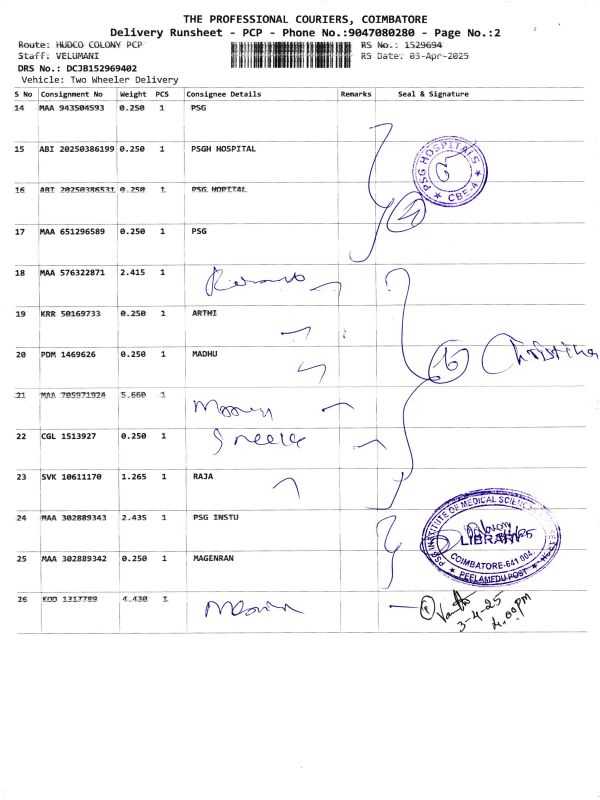 THE PROFESSIONAL COURIERS, COIMBATORE
Delivery Runsheet - PCP - Phone No.:9047080280 - Page No.:2
Route: HUDCO COLONY PCP RS No.: 1529694
Staff: VELUMANI RS Date: 03-Apr-2025
DRS No.: DCJB152969402
Vehicle: Two Wheeler Delivery
S No Consignment No Weight PCS Consignee Details Remarks Seal & Signature
14 MAA 943504593 0.250 1 PSG
15 ABI 20250386199 0.250 1 PSGH HOSPITAL
PSG HOSPITALS
CBE-4
16 ABI 20250386531 0.250 1 PSG HOPITAL
4
17 MAA 651296589 0.250 1 PSG
18 MAA 576322871 2.415 1
19 KRR 50169733 0.250 1 ARTHI
20 PDM 1469626 0.250 1 MADHU
6 Christina
21 MAA 705971924 5.660 1
22 CGL 1513927 0.250 1
23 SVK 10611170 1.265 1 RAJA
24 MAA 302889343 2.435 1 PSG INSTU
PSG INSTITUTE OF MEDICAL SCIENCES
LIBRARY
COIMBATORE-641 004.
PEELAMEDU POST
25 MAA 302889342 0.250 1 MAGENRAN
26 KOD 1317789 4.430 1
3-4-25
4.00PM